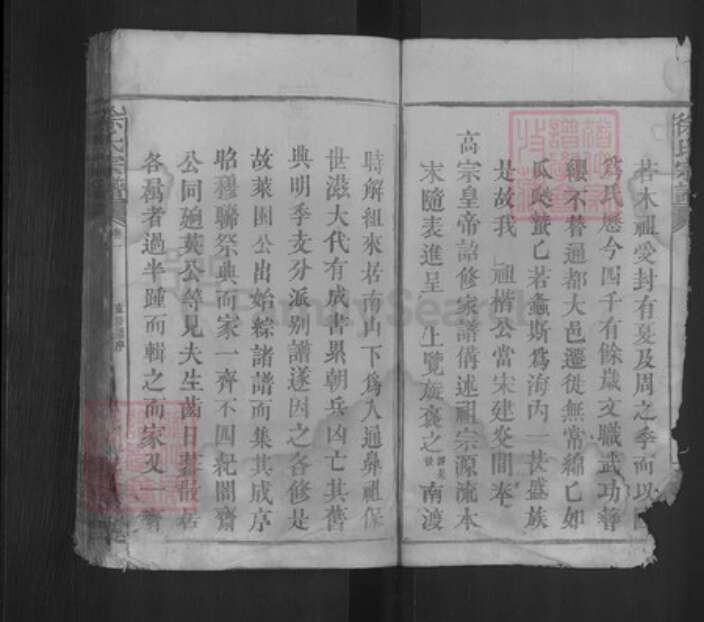 徐氏宗譜
若木祖受封有夏及周之季而以國
爲氏歷今四千有餘歲文職武功簪
纓不替通都大邑遷徙無常綿乚如
瓜瓞蟄乚若螽斯爲海內一甚盛族
是故我 祖楷公當宋建炎間奉
高宗皇帝詔修家譜備述祖宗源流本
末隨表進呈 上覽旋褒之 南渡
時解組來居南山下爲入通鼻祖保
世滋大代有成書累朝兵凶亡其舊
與明季支分派别譜遂因之各修是
故萊園公出始綜諸譜而集其成序
昭穆聯祭典而家一齊不四紀闇齋
公同廸英公等見夫生齒日蕃散居
各屬者過半踵而輯之而家又一齊
徐氏宗譜
FamilySearch